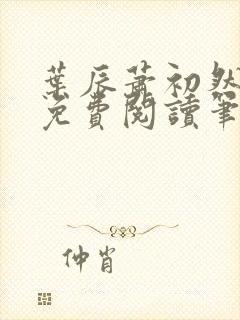 葉辰蕭初然
免費閱讀筆
仲肖